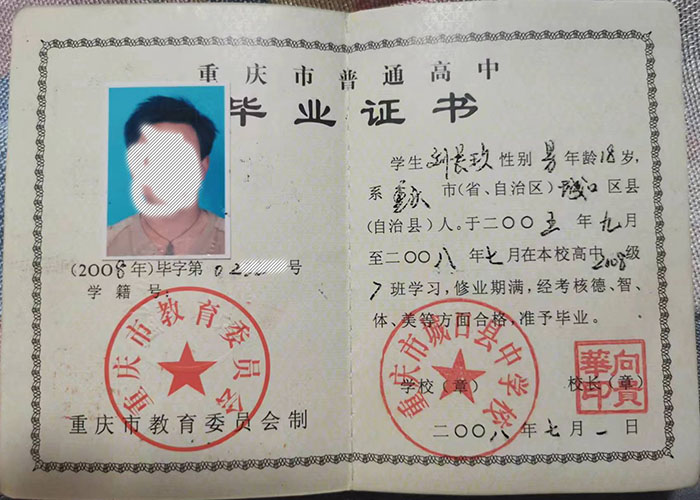 重庆市普通高中
毕业证书
(2008年)毕字第02 号
学籍号:
重庆市教育委员会
重庆市教育委员会制
学生刘长玖性别男年龄18岁,
系重庆市(省、自治区)城口区县
(自治县)人。于二〇〇五年九月
至二〇〇八年七月在本校高中2008级
7班学习,修业期满,经考核德、智、
体、美等方面合格,准予毕业。
学校(章) 校长(章)
重庆市城口县中学校
向贵華印
二〇〇八年七月一日